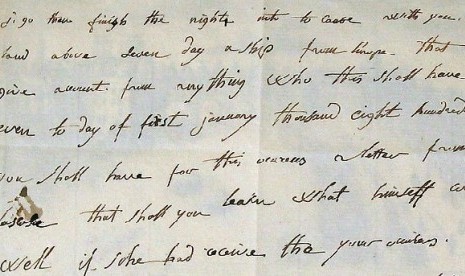 j. go then finish the night, not to cause with you.
land above seven day a ship from europe. that
give account from anything who this shall have
even to day of first january thousand eight hundred
you shall have for this a letter from
that shall you learn what himself
well if she had receive the your